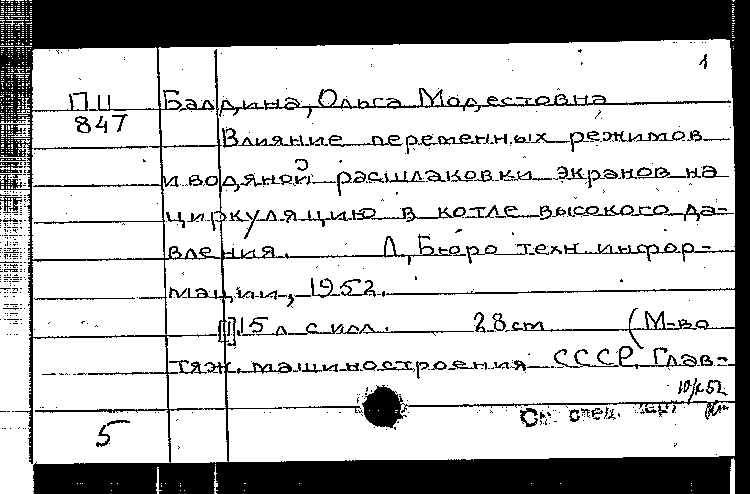 1
П.Ц Балдина, Ольга Модестовна
847
Влияние переменных режимов
и водяной расшлаковки экранов на
циркуляцию в котле высокого да-
вления. Л., Бюро техн. инфор-
мации, 1952.
[1], 15 л. с илл. 28 cm (М-во
тяж. машиностроения СССР. Глав-
10/X 52
5 См. спец. карт